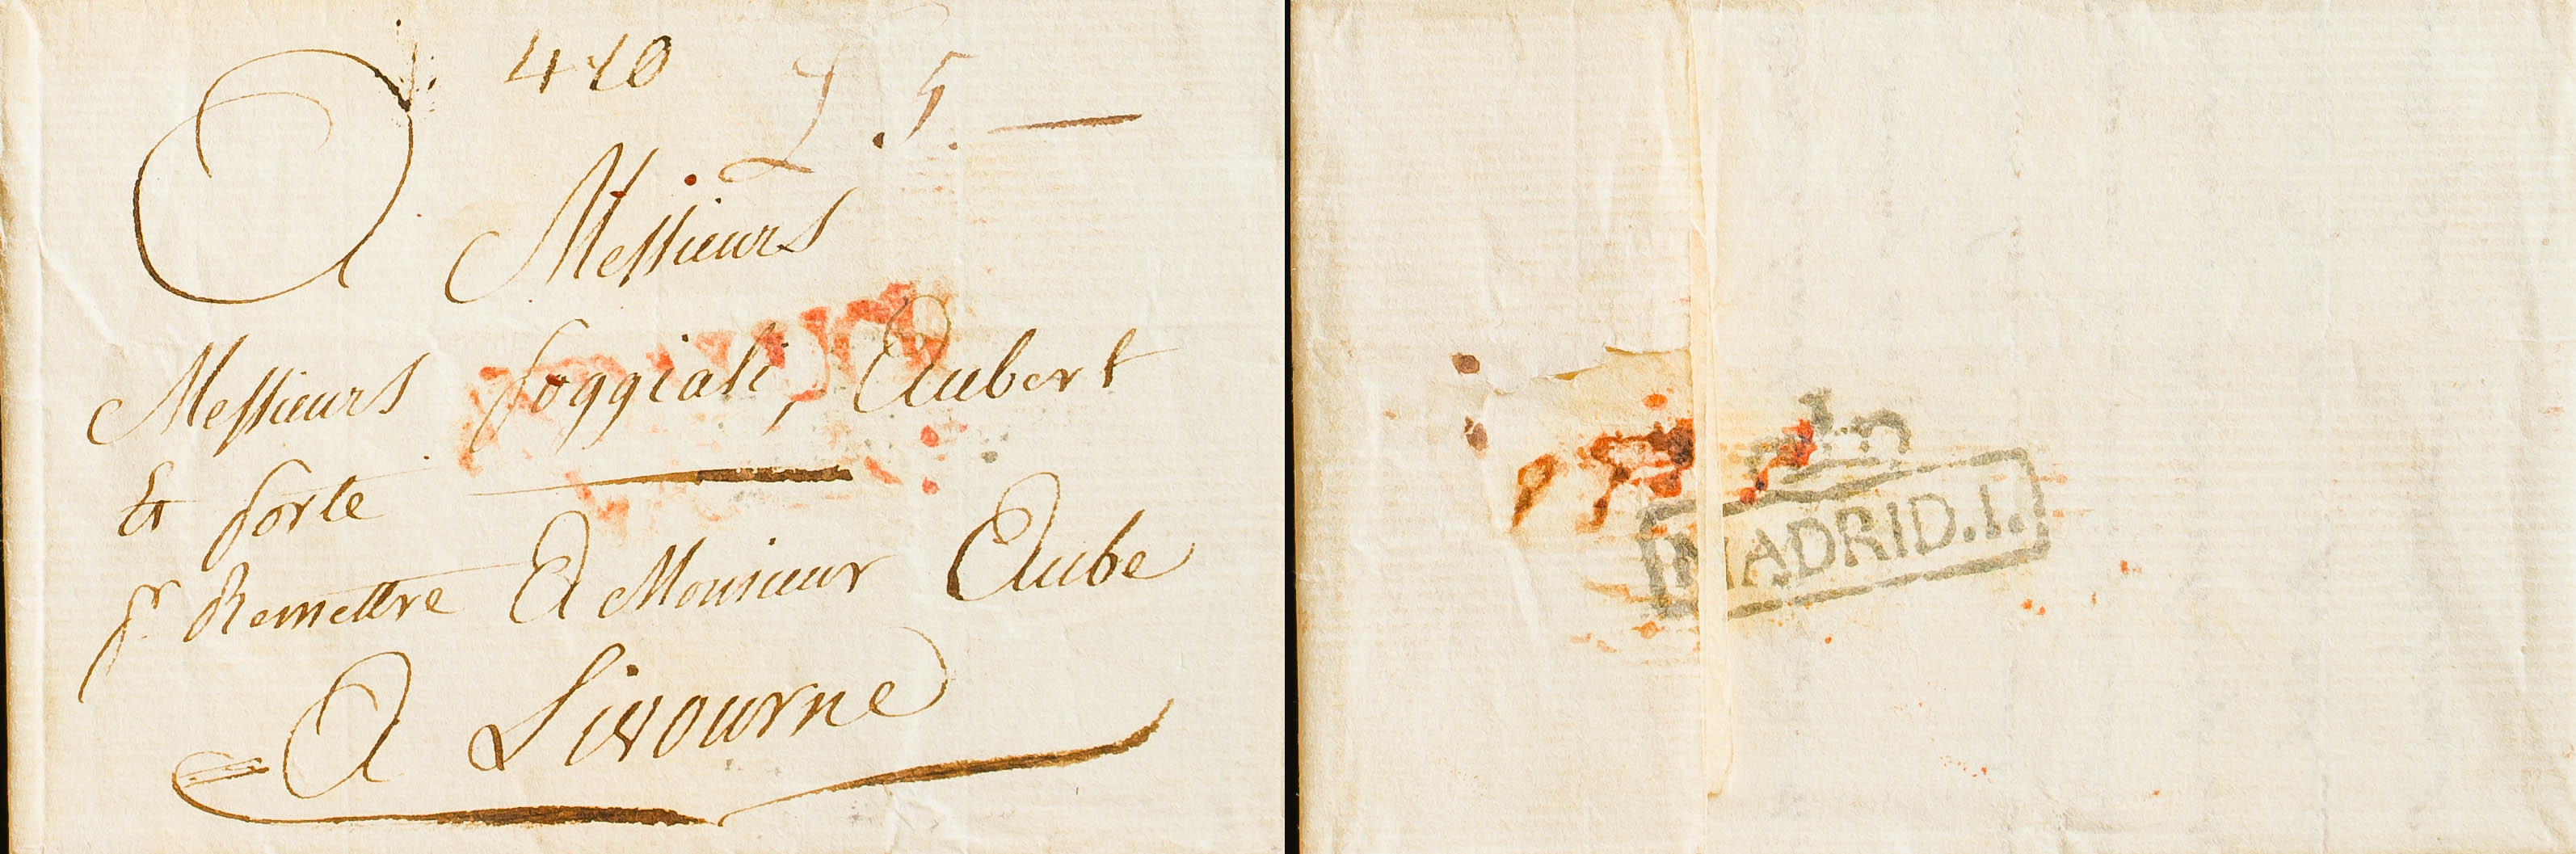 410
5.
A Messieurs
Messieurs foggiali, Aubert
Et forte
pr Remettre A Monsieur Aube
A Livourne
MADRID.I.